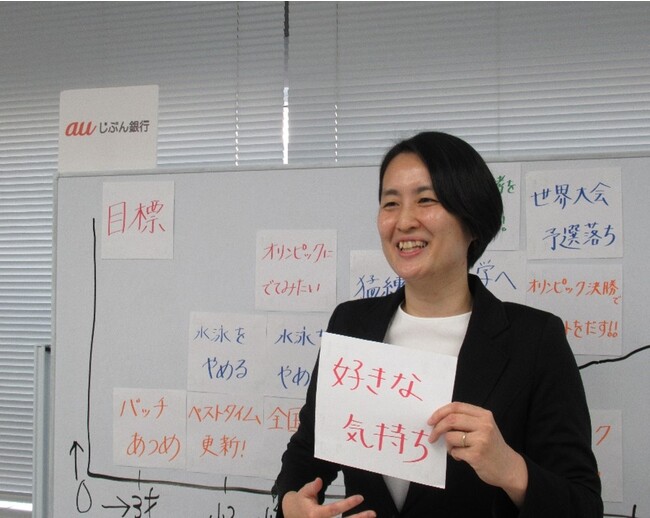 au じぶん銀行
目標
オリンピックに
でてみたい
猛練
学へ
世界大会
予選落ち
オリンピック決勝で
トをだす!!
水泳を
やめる
水泳を
やめ
バッチ
あつめ
ベストタイム
更新!
全国
好きな
気持ち
0
3才